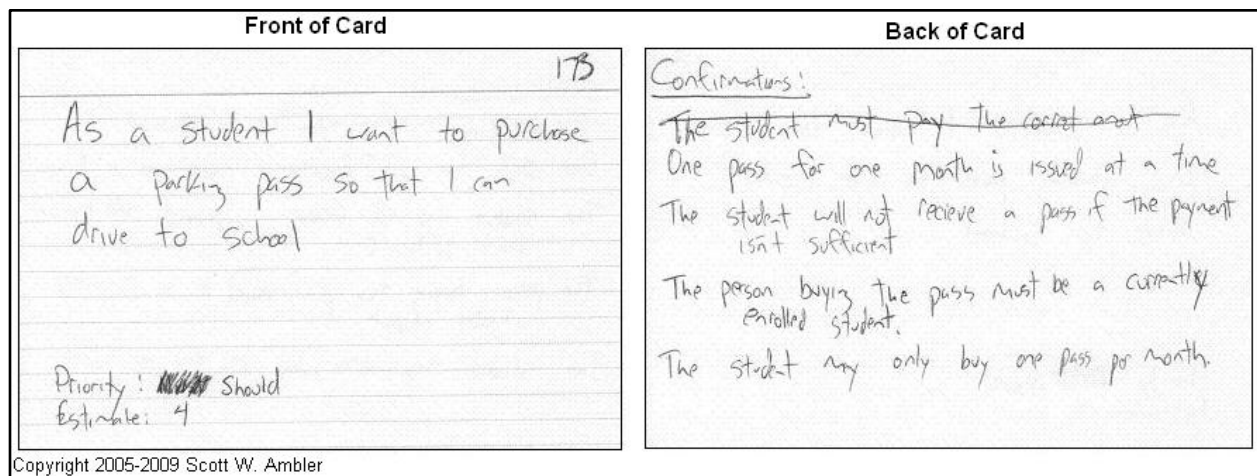 Front of Card
173
As a student I want to purchase
a parking pass so that I can
drive to school
Priority: Should
Estimate: 4
Back of Card
Confirmations:
The student must pay the corret
One pass for one month is issued at a time
The student will not recieve a pass if the payment
isn't sufficient
The person buying the pass must be a currently
enrolled student.
The student may only buy one pass per month.
Copyright 2005-2009 Scott W. Ambler